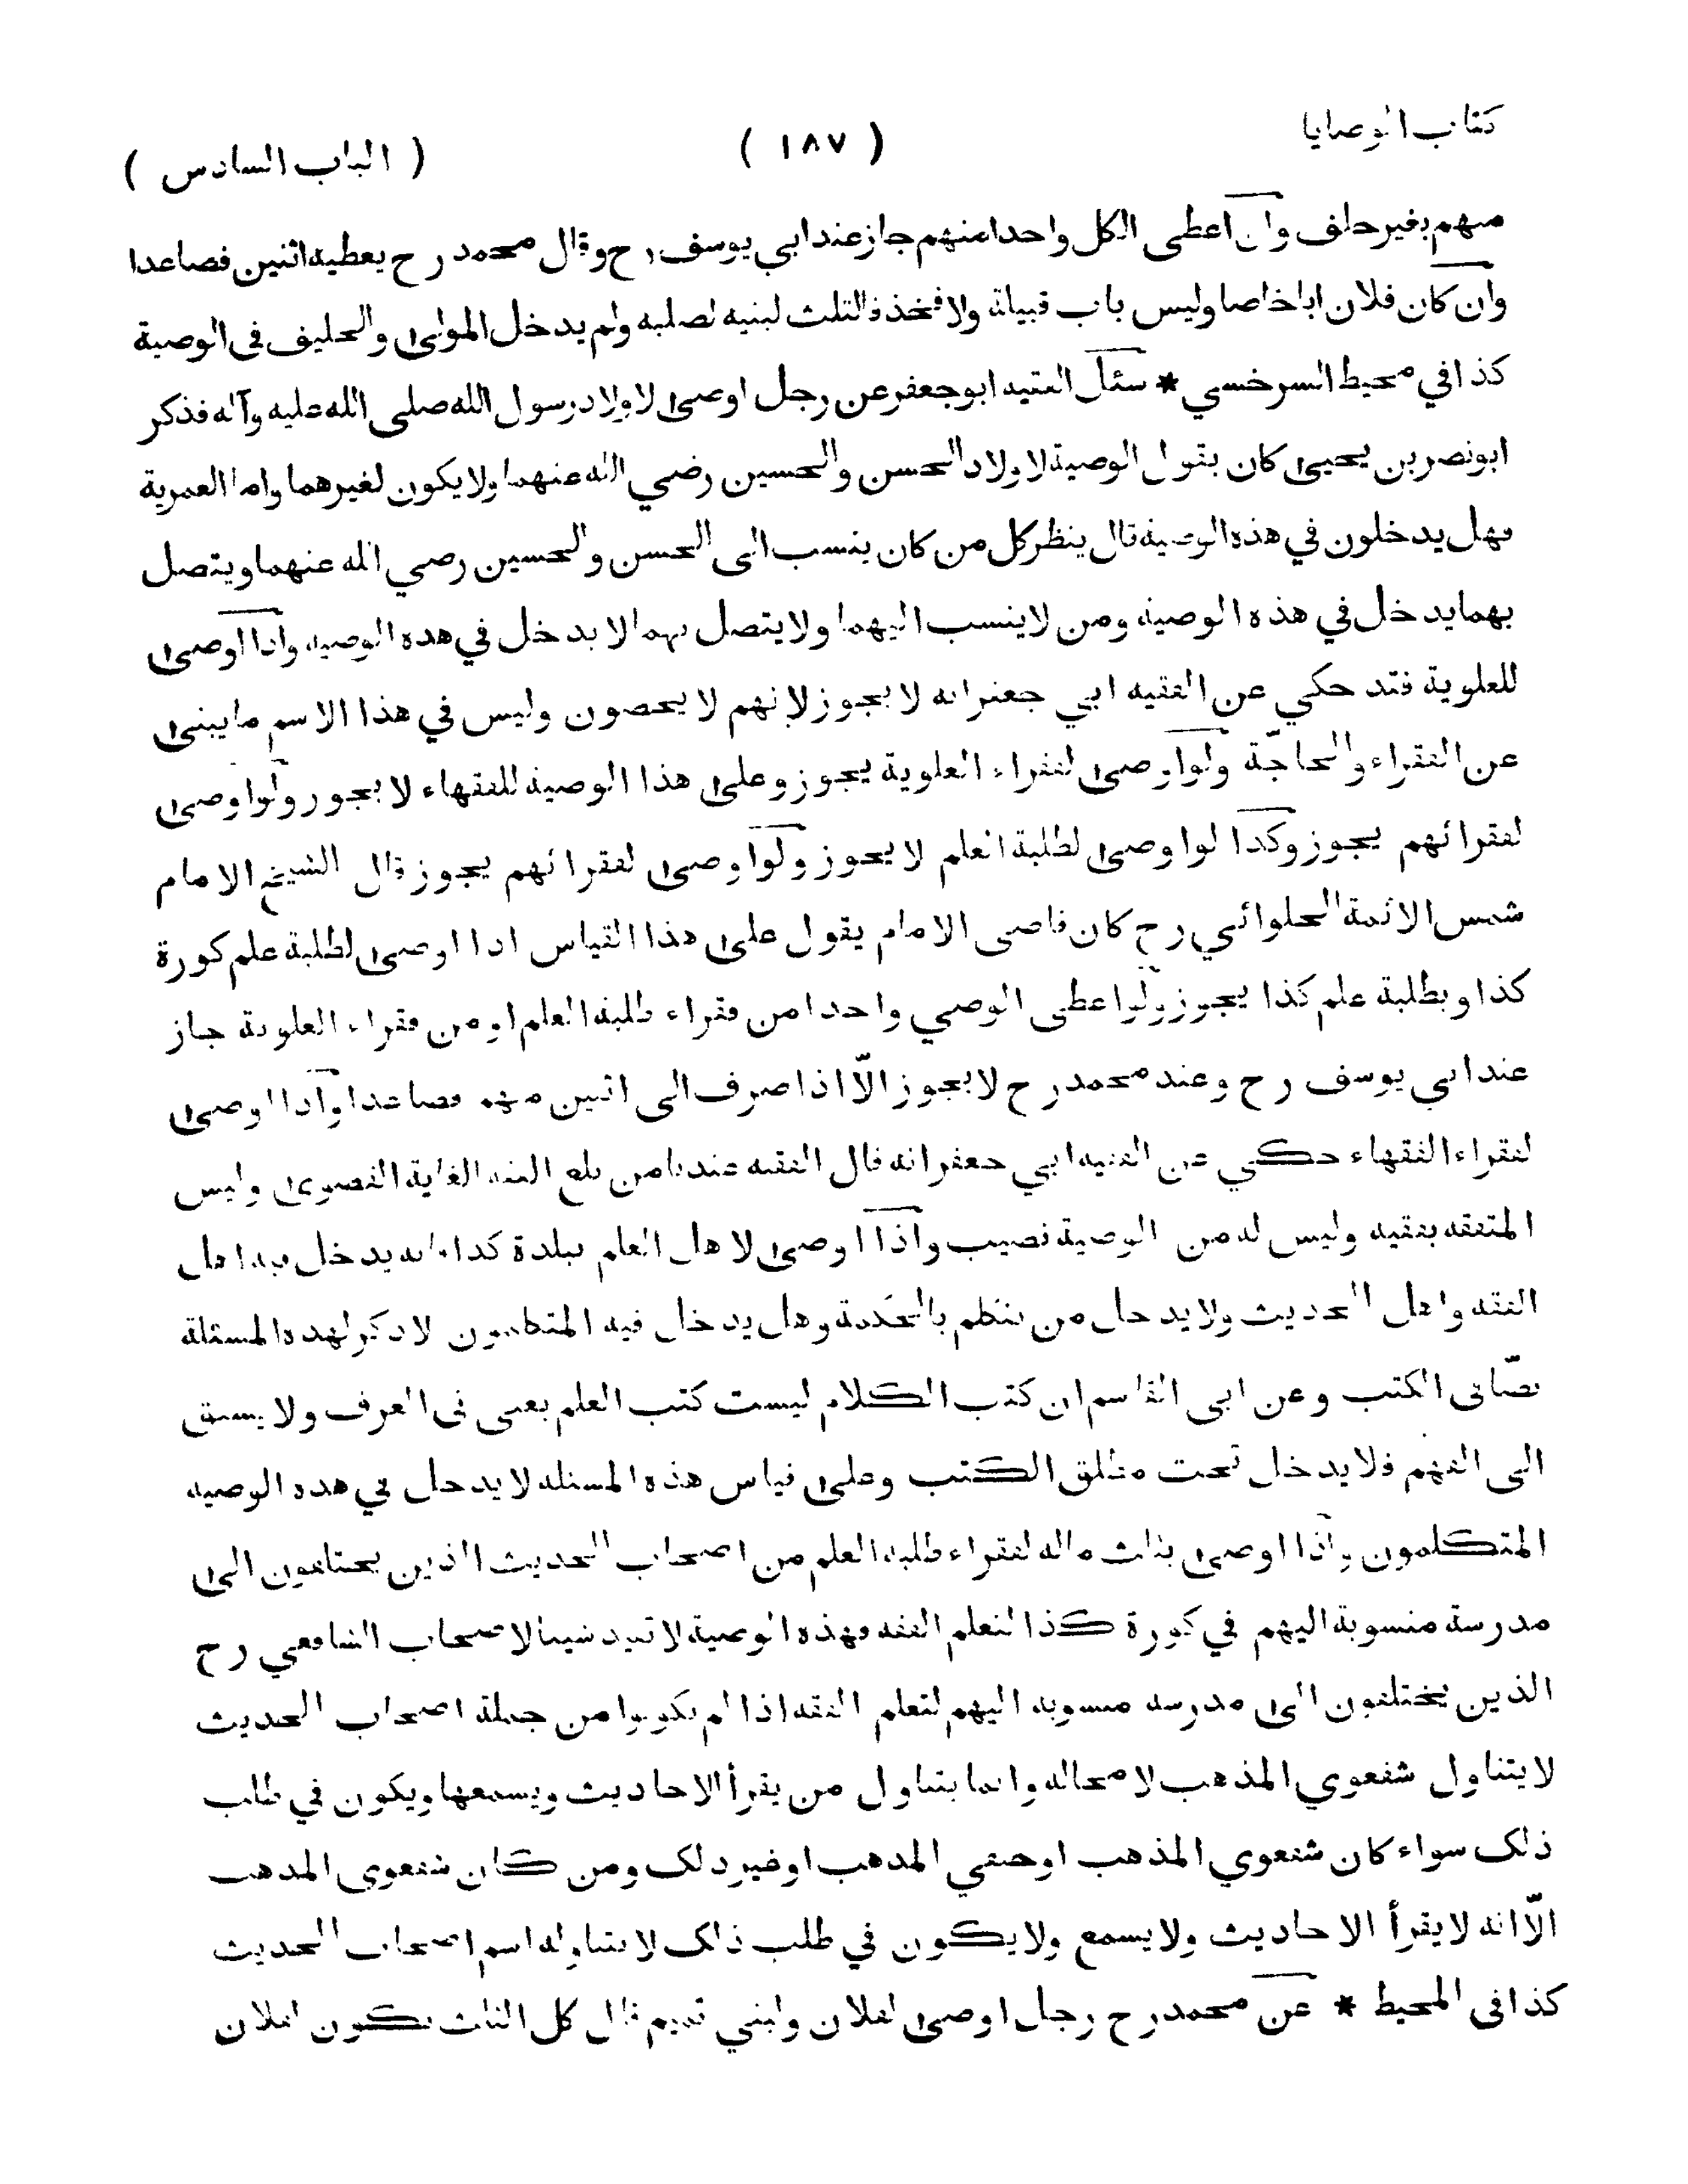 كتاب الوصايا ( ١٨٧ ) ( الباب السادس )
منهم بغير حلف وان اعطى الكل واحدا منهم جاز عند ابي يوسف رح وقال محمد رح يعطيه اثنين فصاعدا
وان كان فلان ابا خاصا وليس باب قبيلة ولا فخذ فالثلث لبنيه لصلبه ولم يدخل الموالى والحليف فى الوصية
كذا في محيط السرخسي * سئل الفقيه ابو جعفر عن رجل اوصى لاولاد رسول الله صلى الله عليه وآله فذكر
ابو نصر بن يحيى كان يقول الوصية لاولاد الحسن والحسين رضي الله عنهما ولا يكون لغيرهما واما العمرية
فهل يدخلون في هذه الوصية قال ينظر كل من كان ينسب الى الحسن والحسين رضي الله عنهما ويتصل
بهما يدخل في هذه الوصية ومن لا ينسب اليهما ولا يتصل بهما لا يدخل في هذه الوصية واذا اوصى
للعلوية فقد حكي عن الفقيه ابي جعفر انه لا يجوز لانهم لا يحصون وليس في هذا الاسم ما يبنى
عن الفقراء والحاجّة ولو اوصى لفقراء العلوية يجوز وعلى هذا الوصية للفقهاء لا يجوز ولو اوصى
لفقرائهم يجوز وكذا لو اوصى لطلبة العلم لا يجوز ولو اوصى لفقرائهم يجوز قال الشيخ الامام
شمس الائمة الحلوائي رح كان قاضى الامام يقول على هذا القياس اذا اوصى لطلبة علم كورة
كذا و بطلبة علم كذا يجوز ولو اعطى الوصي واحدا من فقراء طلبة العلم او من فقراء العلوية جاز
عند ابي يوسف رح وعند محمد رح لا يجوز الّا اذا صرف الى اثنين منهم فصاعدا واذا اوصى
لفقراء الفقهاء حكي عن الفقيه ابي جعفر انه قال الفقيه عندنا من بلغ الفقه الغاية القصوى وليس
المتفقه بفقيه وليس له من الوصية نصيب واذا اوصى لاهل العلم ببلدة كذا فانه يدخل فيه اهل
الفقه واهل الحديث ولا يدخل من يتكلم بالحكمة وهل يدخل فيه المتكلمون لا ذكر لهذه المسئلة
نصّا فى الكتب وعن ابى القاسم ان كتب الكلام ليست كتب العلم يعنى فى العرف ولا يسبق
الى الفهم فلا يدخل تحت مطلق الكتب وعلى قياس هذه المسئلة لا يدخل في هذه الوصية
المتكلمون واذا اوصى بثلث ماله لفقراء طلبة العلم من اصحاب الحديث الذين يختلفون الى
مدرسة منسوبة اليهم في كورة كذا لتعلم الفقه فهذه الوصية لا تفيد شيئا لاصحاب الشافعي رح
الذين يختلفون الى مدرسة منسوبة اليهم لتعلم الفقه اذا لم يكونوا من جملة اصحاب الحديث
لا يتناول شفعوي المذهب لا محالة وانما يتناول من يقرأ الاحاديث ويسمعها ويكون في طلب
ذلك سواء كان شفعوي المذهب او حنفي المذهب او غير ذلك ومن كان شفعوى المذهب
الّا انه لا يقرأ الاحاديث ولا يسمع ولا يكون في طلب ذلك لا يتناوله اسم اصحاب الحديث
كذا فى المحيط * عن محمد رح رجل اوصى لفلان ولبني تميم قال كل الثلث يكون لفلان